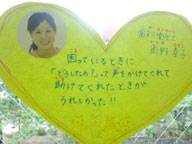 困っているときに
「どうしたの？」って声をかけてくれて
助けてくれたときが
うれしかった!!